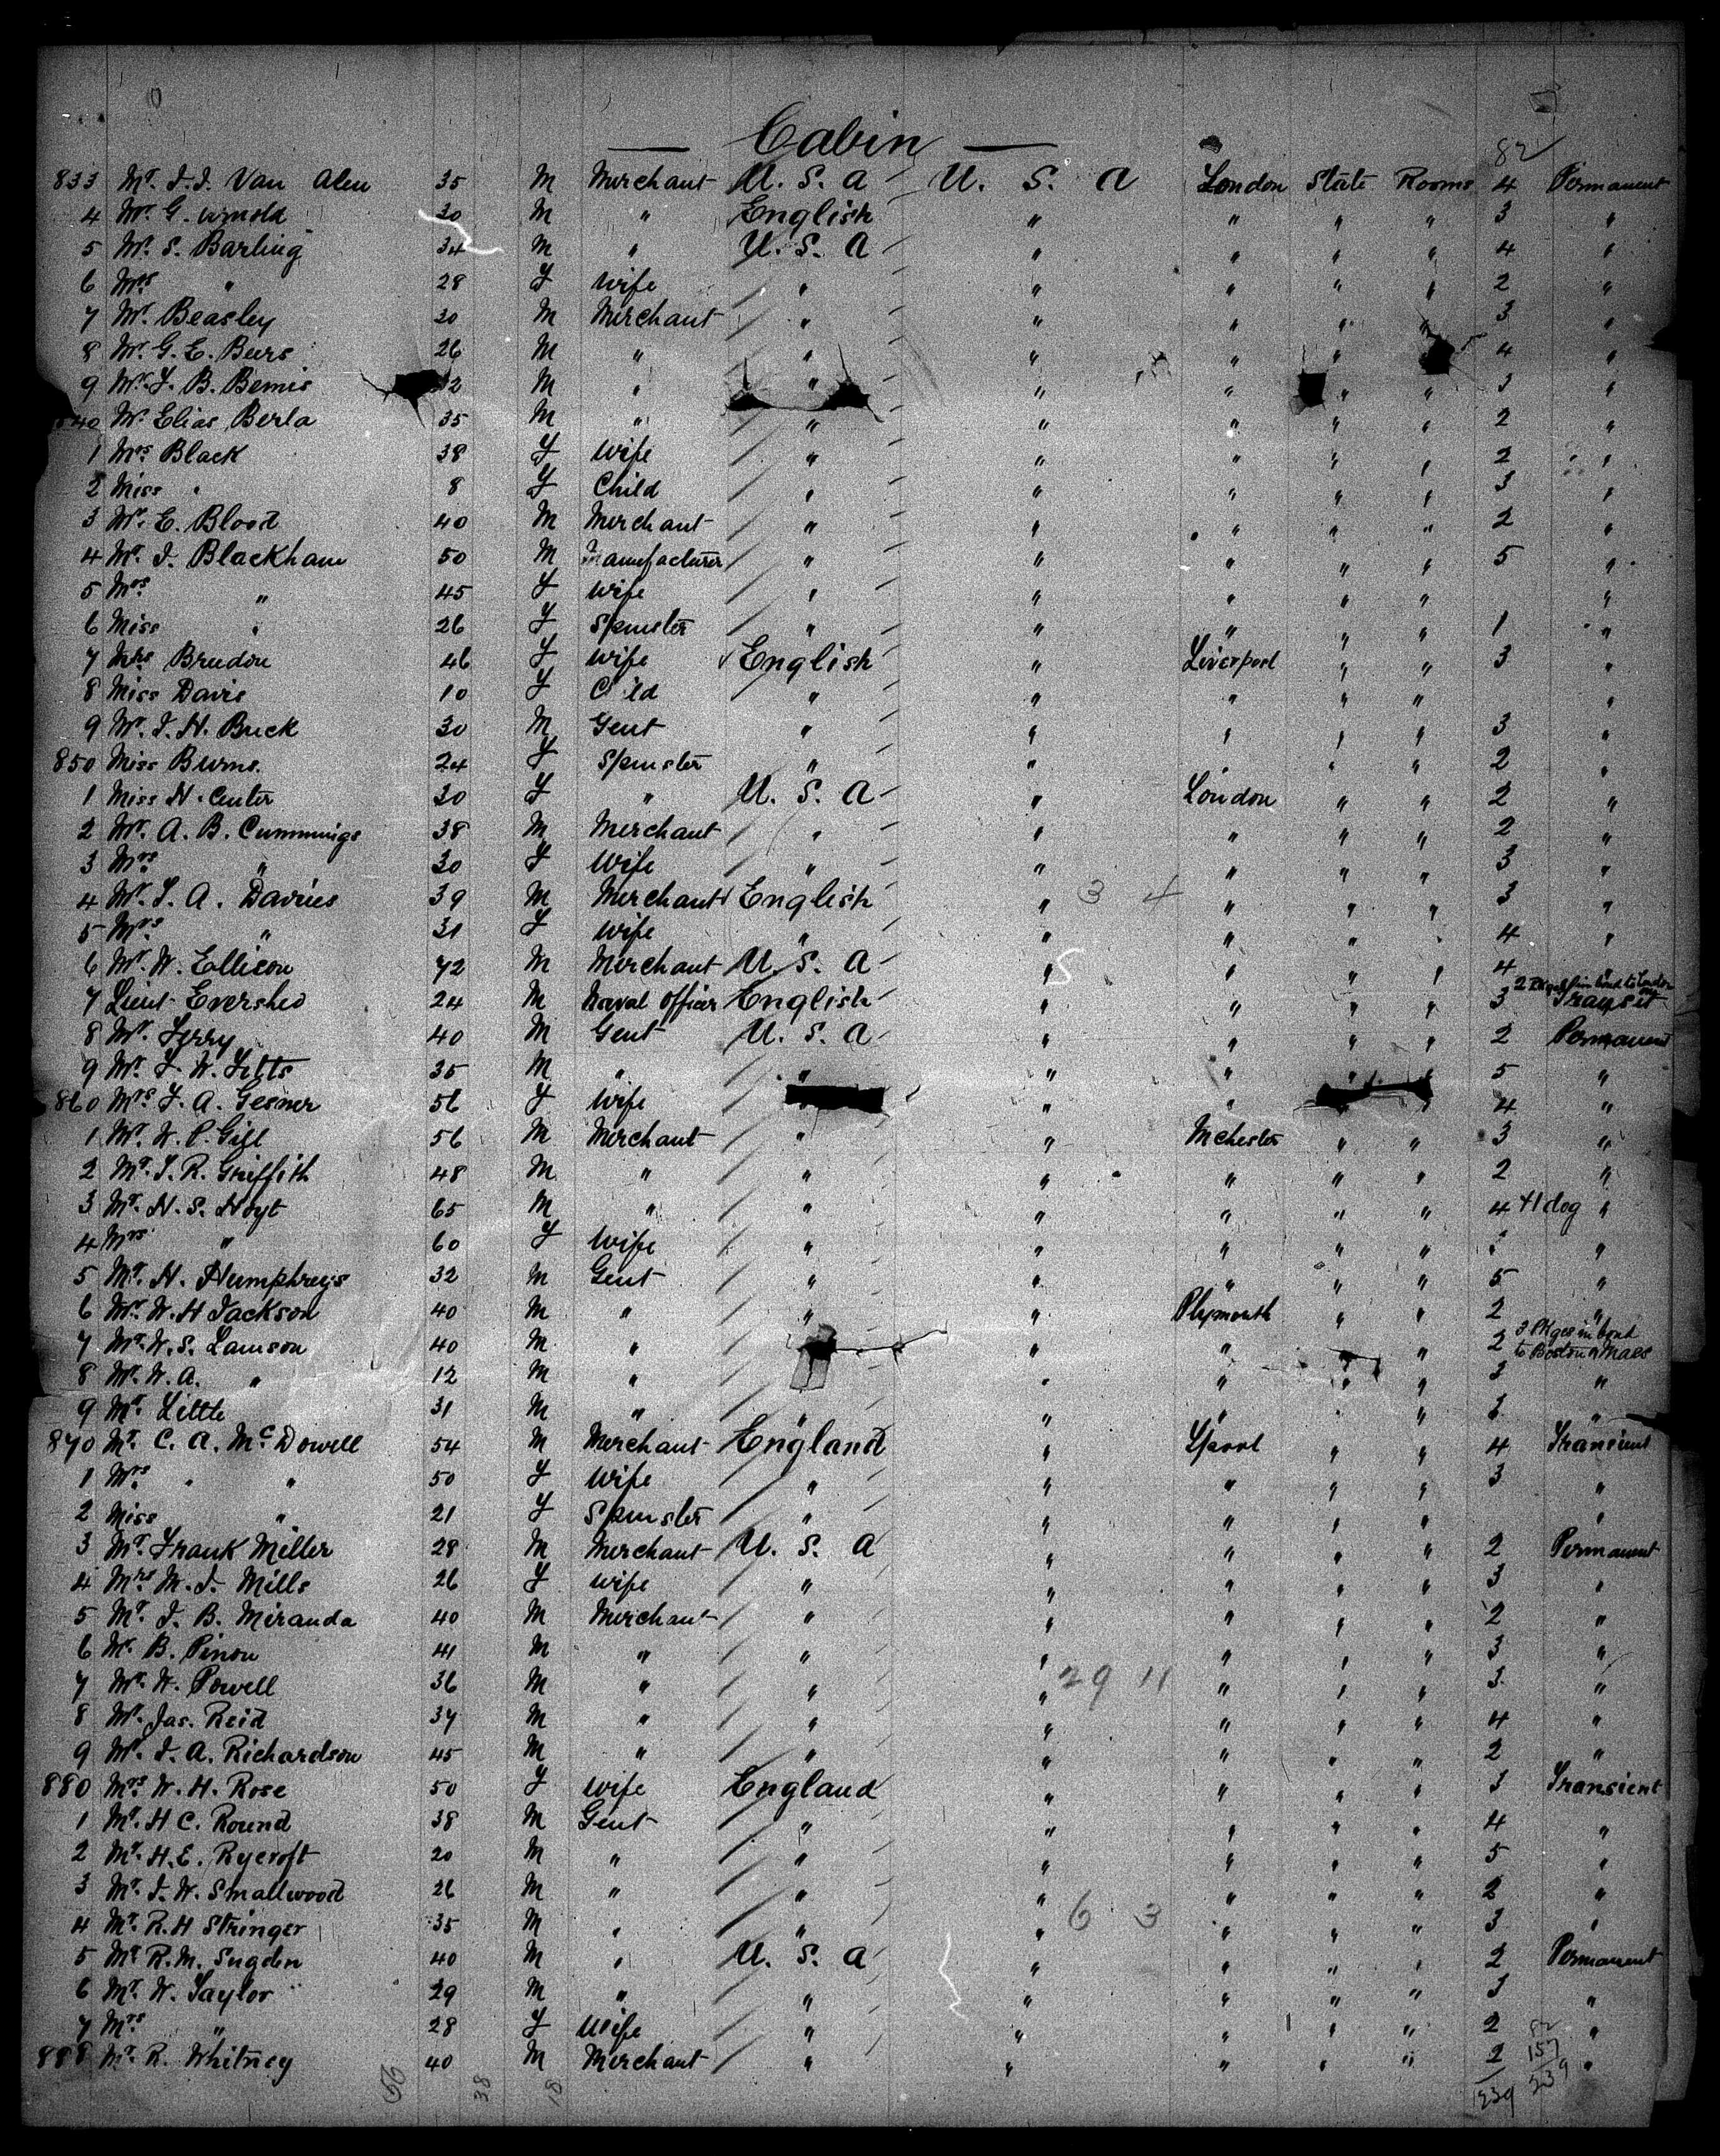 Cabin
82
833 Mr. J. J. Van Alen 35 M Merchant U. S. A U. S. A London State Rooms 4 Permanent
4 Mr. G. Arnold 30 M " English " " " " 3 "
5 Mr. S. Barling 34 M " U. S. A " " " " 4 "
6 Mrs " 28 F Wife " " " " " 2 "
7 Mr. Beasley 30 M Merchant " " " " " 3 "
8 Mr. G. E. Beers 26 M " " " " " " 4 "
9 Mr. F. B. Bemis 2 M " " " " " " 3 "
840 Mr. Elias Berla 35 M " " " " " " 2 "
1 Mrs Black 38 F Wife " " " " " 2 "
2 Miss " 8 F Child " " " " " 3 "
3 Mr. E. Blood 40 M Merchant " " " " " 2 "
4 Mr. J. Blackham 50 M Manufacturer " " " " " 5 "
5 Mrs " 45 F Wife " " " " " "
6 Miss " 26 F Spinster " " " " " 1 "
7 Mrs Brudon 46 F Wife English " Liverpool " " 3 "
8 Miss Davis 10 F C ild " " " " " "
9 Mr. J. H. Buck 30 M Gent " " " " " 3 "
850 Miss Burns. 24 F Spinster " " " " " 2 "
1 Miss H. Center 30 F " U. S. A " London " " 2 "
2 Mr. A. B. Cummings 38 M Merchant " " " " " 2 "
3 Mrs " 30 F Wife " " " " " 3 "
4 Mr. S. A. Davies 39 M Merchant English " 3 4 " " " 3 "
5 Mrs " 31 F Wife " " " " " 4 "
6 Mr. W. Ellison 72 M Merchant U. S. A " " " " 4 "
7 Lieut Evershed 24 M Naval Officer English " " " " 3 Transit
8 Mr. Ferry 40 M Gent U. S. A " " " " 2 Permanent
9 Mr. F. W. Fitts 35 M " " " " " " 5 "
860 Mrs F. A. Gesner 56 F Wife " " " " 4 "
1 Mr. W. P. Gill 56 M Merchant " " Mchester " " 3 "
2 Mr. S. R. Griffith 48 M " " " " " " 2 "
3 Mr. H. S. Hoyt 65 M " " " " " " 4 +1 dog "
4 Mrs " 60 F Wife " " " " " "
5 Mr. H. Humphreys 32 M Gent " " " " " 5 "
6 Mr. W. H Jackson 40 M " " " Plymouth " " 2 "
7 Mr. W. S. Lamson 40 M " " " " " 2 3 Pkges in bond to Boston Mass
8 Mr. W. A. " 12 M " " " " " 3 "
9 Mr. Little 31 M " " " " " " 3 "
870 Mr. C. A. McDowell 54 M Merchant England " Lpool " " 4 Transient
1 Mrs " " 50 F Wife " " " " " 3 "
2 Miss " 21 F Spinster " " " " " "
3 Mr. Frank Miller 28 M Merchant U. S. A " " " " 2 Permanent
4 Mrs M. J. Mills 26 F Wife " " " " " 3 "
5 Mr. J. B. Miranda 40 M Merchant " " " " " 2 "
6 Mr. B. Pinou 41 M " " " " " " 3 "
7 Mr. W. Powell 36 M " " " 29 11 " " " 3 "
8 Mr. Jas. Reid 37 M " " " " " " 4 "
9 Mr. J. A. Richardson 45 M " " " " " " 2 "
880 Mrs W. H. Rose 50 F Wife England " " " " 3 Transient
1 Mr. H C. Round 38 M Gent " " " " " 4 "
2 Mr. H. E. Rycroft 20 M " " " " " " 5 "
3 Mr. J. W. Smallwood 26 M " " " " " " 2 "
4 Mr. R. H Stringer 35 M " " " 6 3 " " " 3 "
5 Mr R. M. Sugden 40 M " U. S. A " " " " 2 Permanent
6 Mr. W. Taylor 29 M " " " " " " 3 "
7 Mrs " 28 F Wife " " " " " 2 "
888 Mr. R. Whitney 40 M Merchant " " " " " 2 "
56 38 18 239 82 157 239